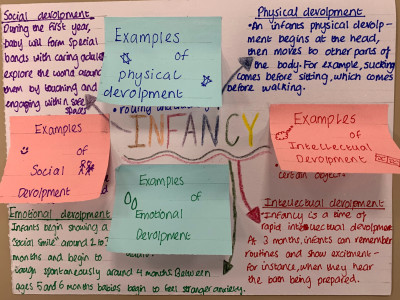 Social devolopment
During the first year,
baby will form special
bonds with caring adults
explore the world around
them by touching and
engaging within safe
spaces
Examples
of
physical
devolopment
Physical devolopment
• An infants physical devolp-
ment begins at the head,
then moves to other parts of
the body. For example, sucking
comes before sitting, which comes
before walking.
INFANCY
Examples
of
Social
Devolpment
Examples
of
Intellectual
Devolpment
certain object.
Examples
of
Emotional
Devolpment
Emotional devolopment
Infants begin showing a
"Social smile" around 2 to 3
months and begin to
laugh spontaneously around 4 months. Between
ages 5 and 6 months babies begin to feel stranger anxiety.
Intellectual devolpment
• Infancy is a time of
rapid intellectual devolpment
At 3 months, infants can remember
routines and show excitment -
for instance, when they hear
the bath being prepared.